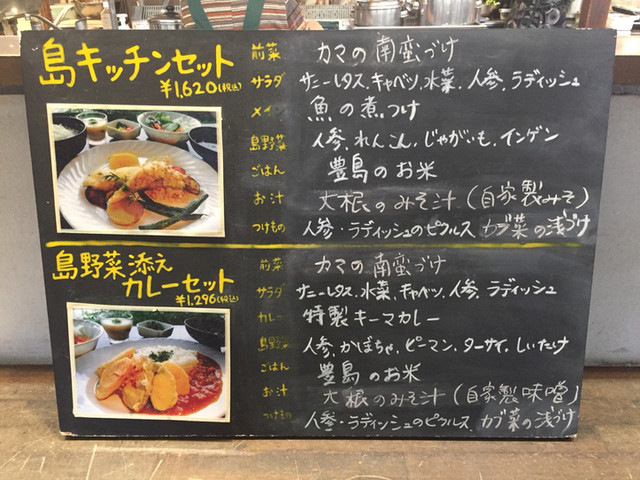 島キッチンセット
¥1,620(税込)
前菜 カマの南蛮づけ
サラダ サニーレタス、キャベツ、水菜、人参、ラディッシュ
メイン 魚の煮つけ
島野菜 人参、れんこん、じゃがいも、インゲン
ごはん 豊島のお米
お汁 大根のみそ汁(自家製みそ)
つけもの 人参・ラディッシュのピクルス カブ菜の浅づけ
島野菜添え
カレーセット
¥1,296(税込)
前菜 カマの南蛮づけ
サラダ サニーレタス、水菜、キャベツ、人参、ラディッシュ
カレー 特製キーマカレー
島野菜 人参、かぼちゃ、ピーマン、ターサイ、しいたけ
ごはん 豊島のお米
お汁 大根のみそ汁(自家製味噌)
つけもの 人参・ラディッシュのピクルス カブ菜の浅づけ